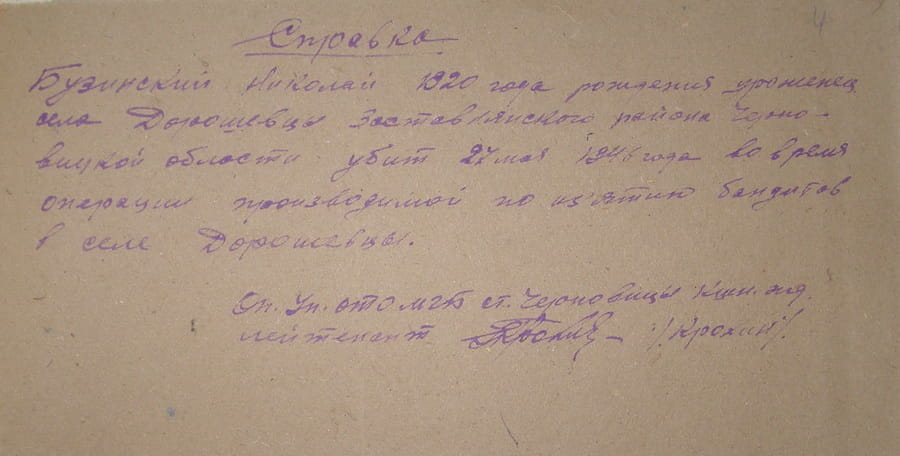 4
Справка
Бузинский Николай 1920 года рождения уроженец
села Дорошевцы Заставнянского района Черно-
вицкой области убит 27 мая 1946 года во время
операции производимой по из'ятию бандитов
в селе Дорошевцы.
Оп. Уп. ОТО МГБ ст. Черновицы Кшн. жд.
лейтенант /Крохин/.